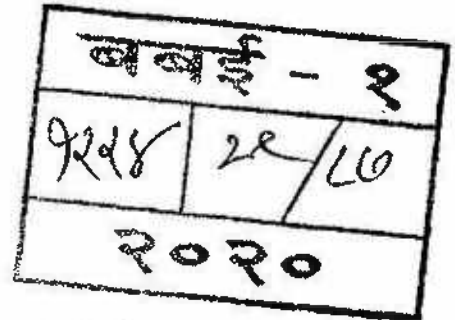 बबई - १
१२२४ २९/८७
२०२०